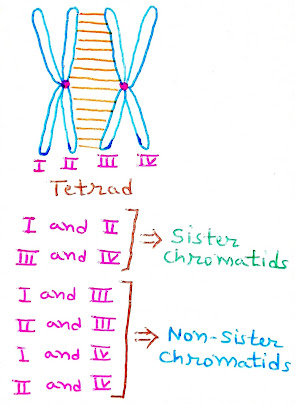 I II III IV
Tetrad
I and II
III and IV
⇒ Sister
Chromatids
I and III
II and III
I and IV
II and IV
⇒ Non-Sister
Chromatids